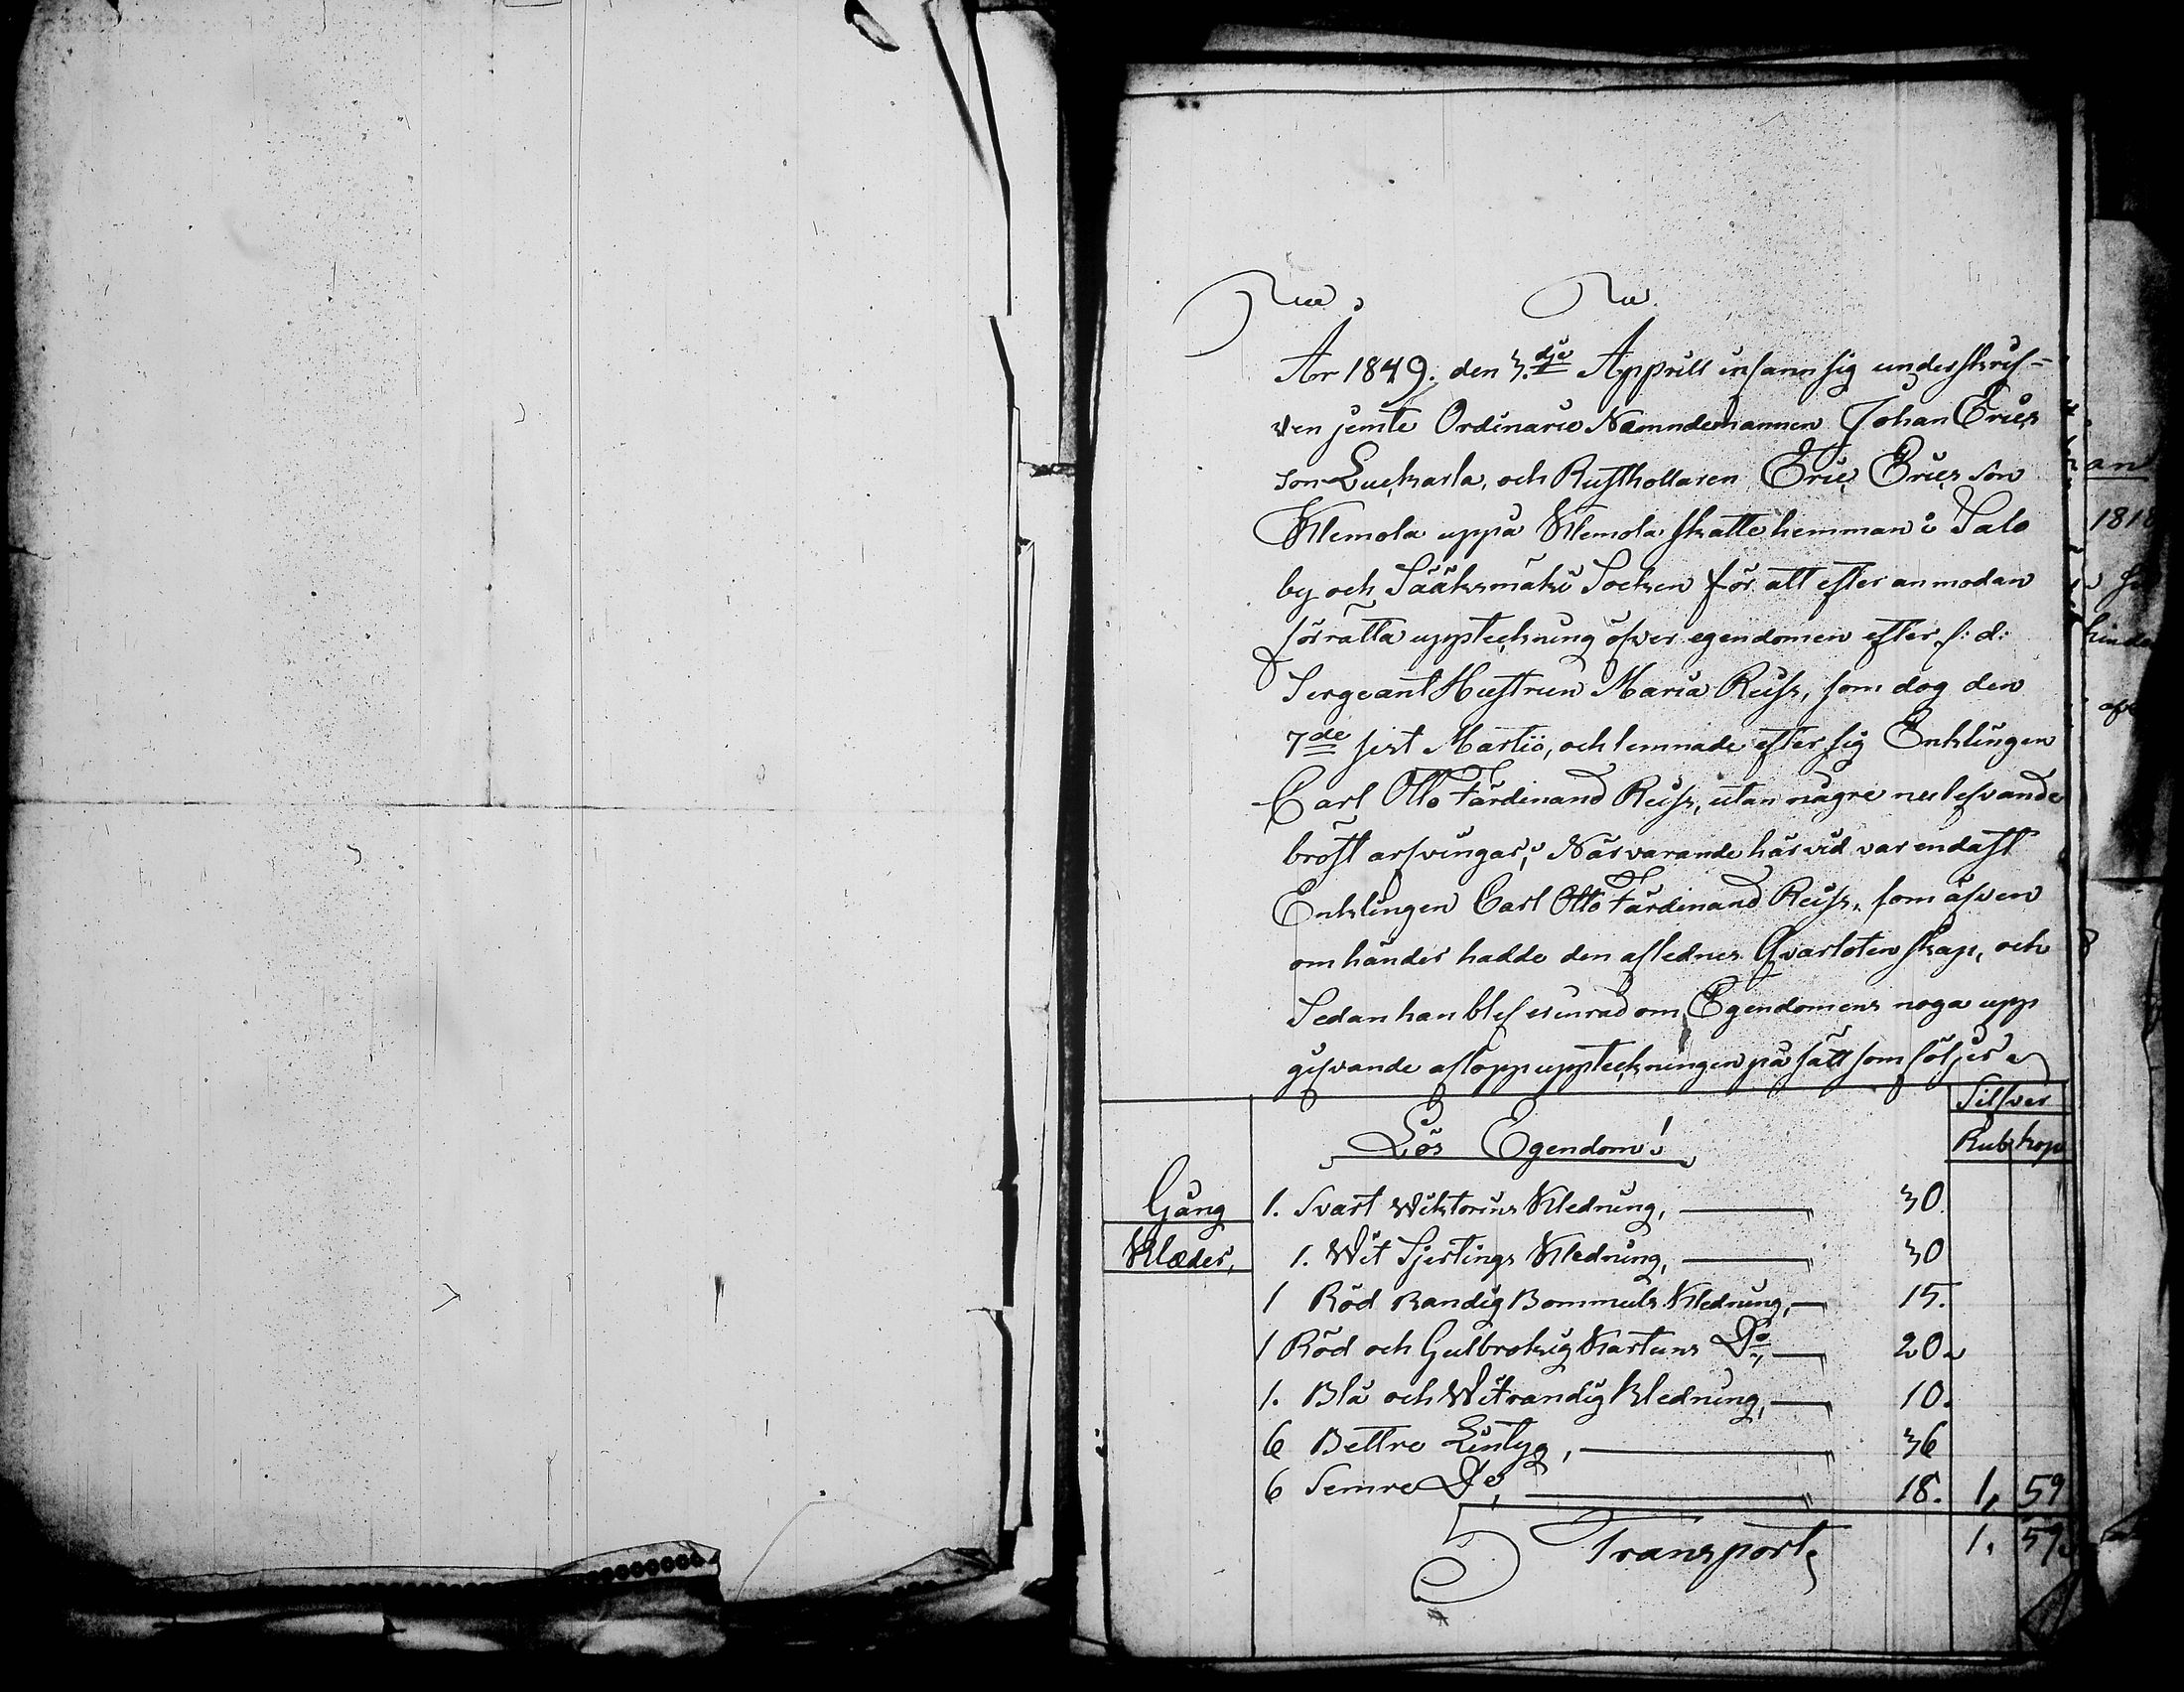 År 1849. den 3.dje Apprill infann sig underskrif-
ven jemte Ordinarie Nämndemannen Johan Erics
son Luckarla, och Rusthollaren Eric Erics son
Klemola uppå Klemola skatte hemman i Salo
by och Sääksmäki Socken för att efter anmodan
förrätta uppteckning öfver egendomen efter f: d:
Sergeant Hustrun Maria Reuss, som dog den
7de sist Martii, och lemnade efter sig Enklingen
Carl Otto Färdinand Reuss, utan några nu lefvande
bröst arfvingar, Närvarande härvid var endast
Enklingen Carl Otto Färdinand Reuss, som äfven
om händer hadde den aflednes Qvarlotenskap, och
Sedan han blef erinrad om Egendomens noga upp
gifvande aflopp uppteckningen på sätt som följer
Silfver
Lös Egendom! Rub kop
Gång 1. Svart Wiktorins Kledning, 30
Klæder, 1. Wit Sjertings Kledning, 30
1 Röd Randig Bommuls Kledning, 15.
1 Röd och Gulbrokig Kartuns Do, 20.
1. Blå och Witrandig Kledning, 10.
6 Bettre Lintyg, 36
6 Semre Do, 18. 1, 59
Transport 1. 59
an
1818